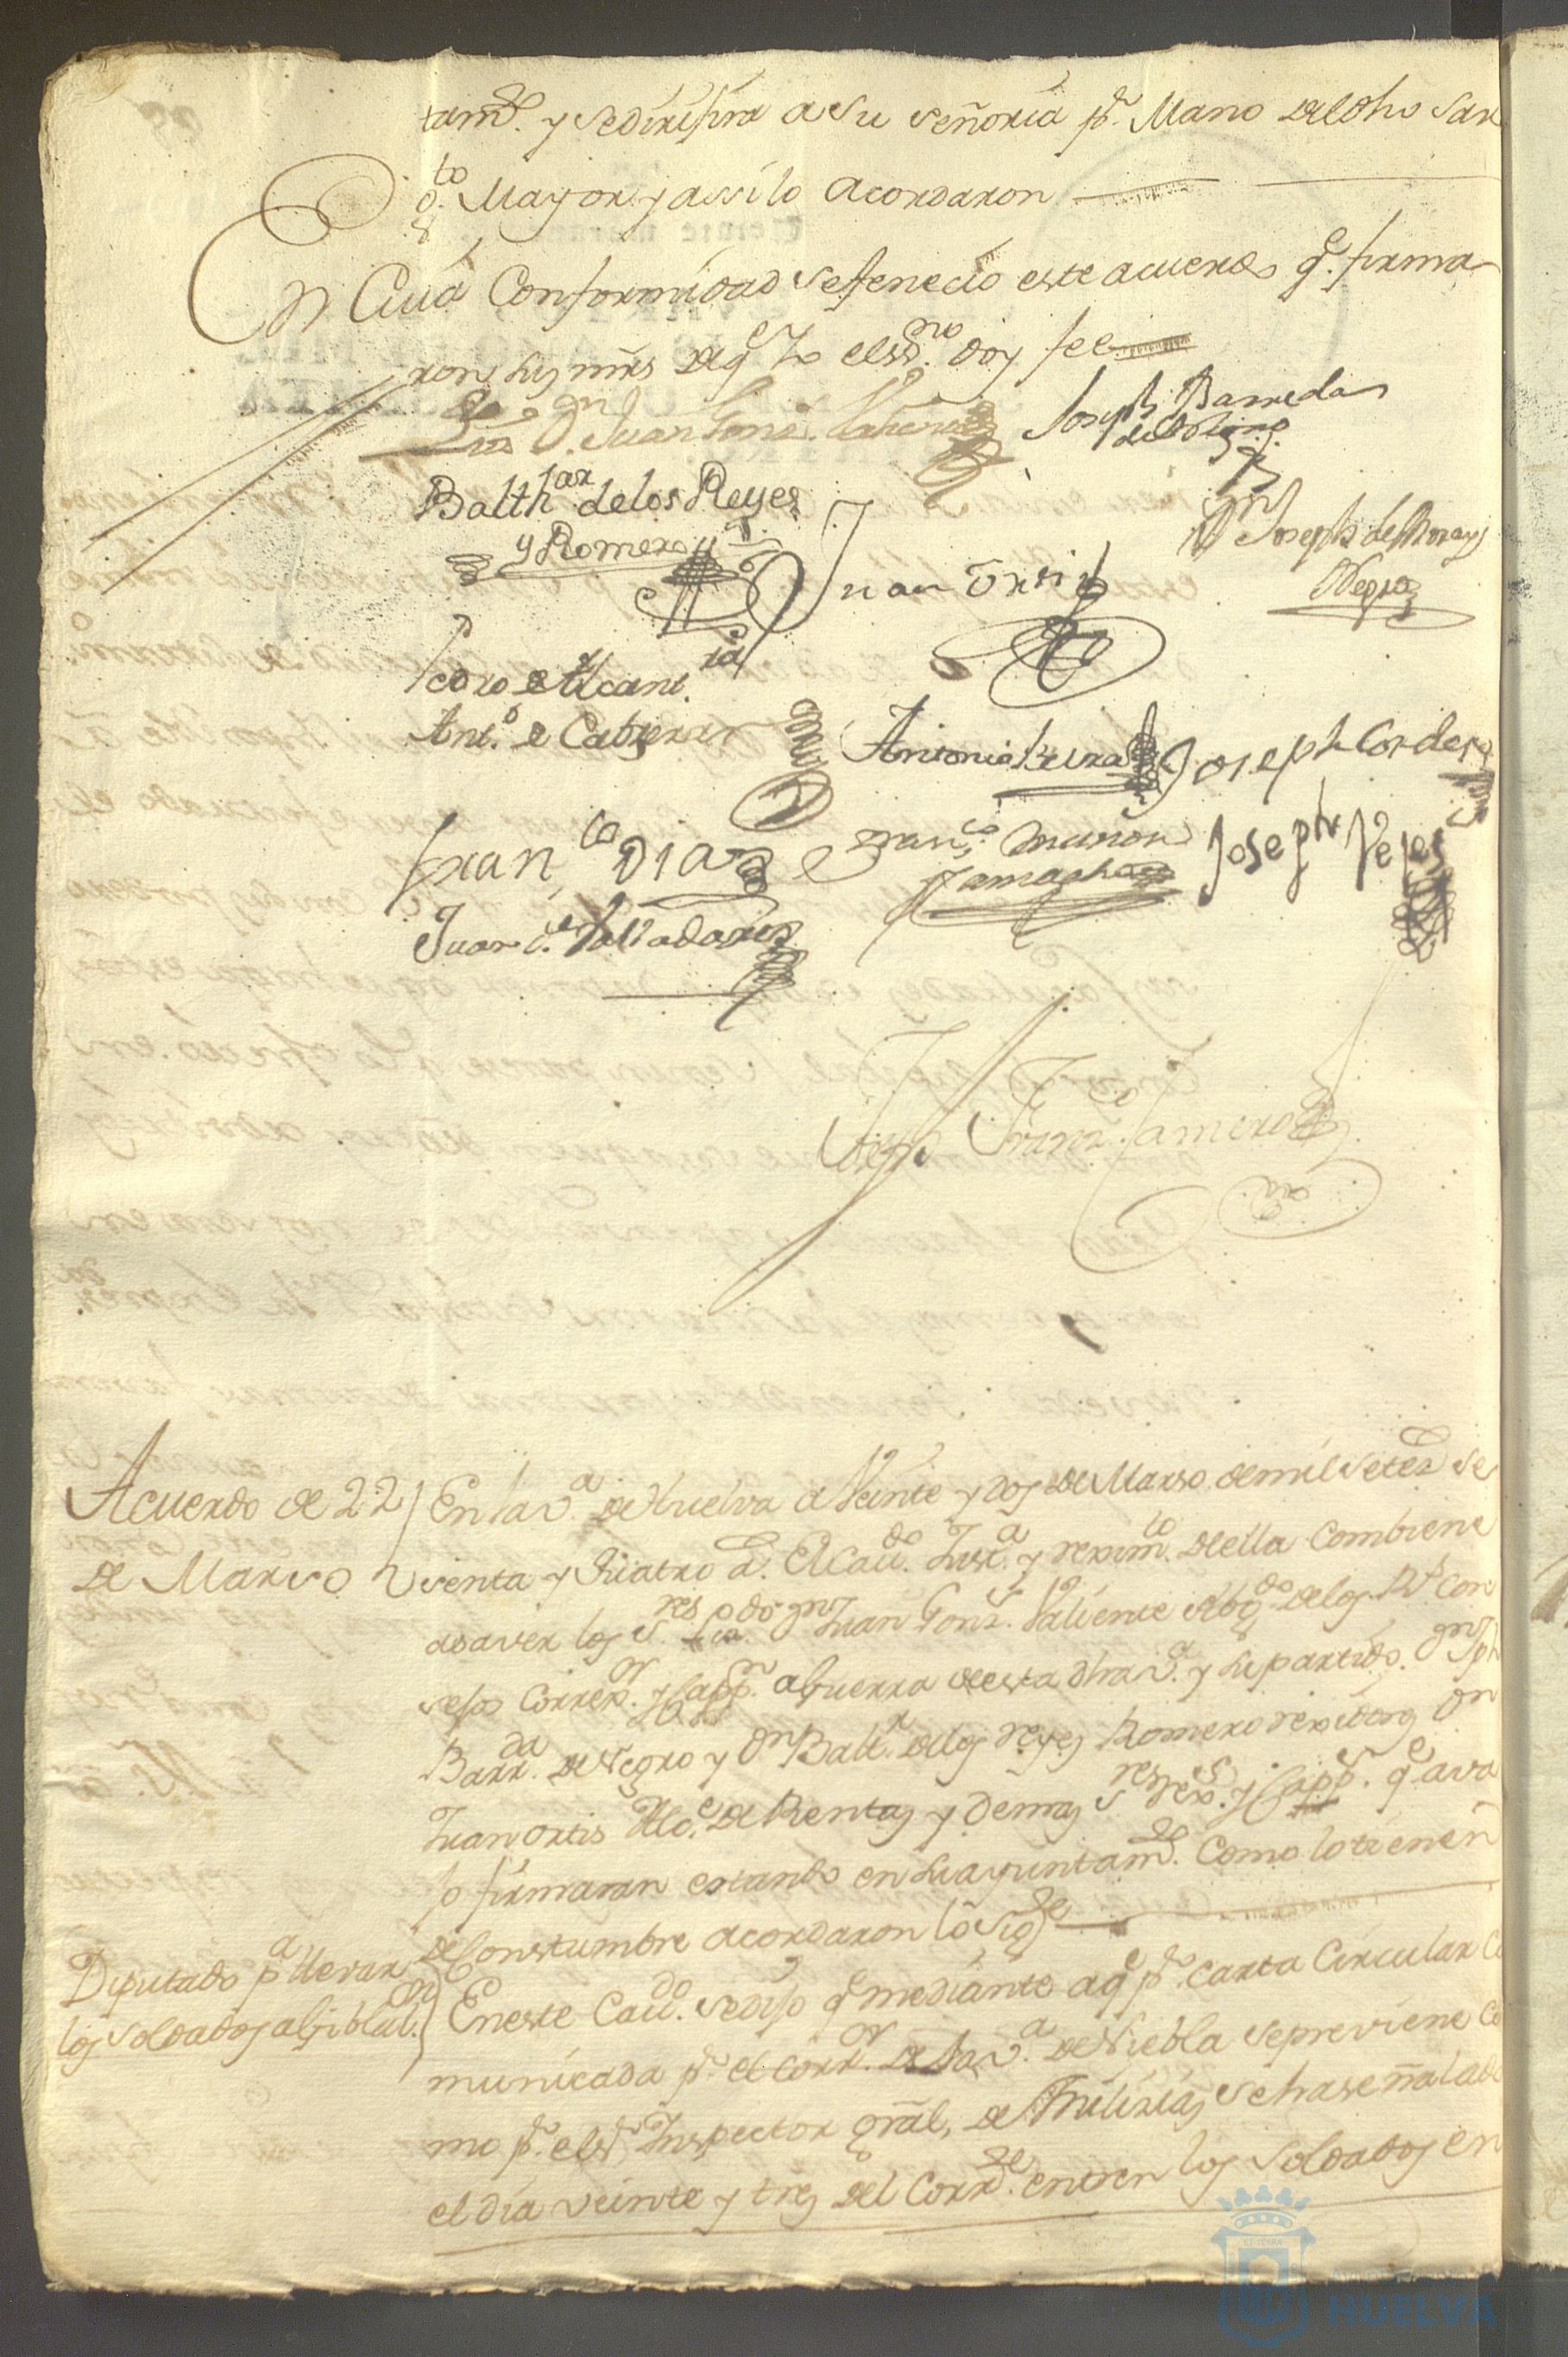 tamto. y se dirijira a Su Señoria pr. Mano del dho Sarx
to. Mayor y assi lo acordaron
En Cuia Conformidad se fenecio este acuerdo q. firma-
ron sus mrds de q Yo el ssno. doy fee
Lizdo. Dn. Juan Gonz. Valiente
Joseph Barreda
Balthar. de los Reyes
y Romero
Juan Ortiz
Dn Joseph de Moray
Negro
Pedro de Alcanta.
Anto. de Cabrera
Antonio Beura
Joseph Cordero
Franco. Diaz
Franco. Muñon
Tamayho
Joseph Veles
Juan de Valladares
Diego Franco. Camero
Acuerdo de 22
de Marso
En la Va. de Huelva a Veinte y dos de Marso de mil setes. se
senta y Quatro a. El Cavdo. Justa. y reximto. de ella Combiene
a saver los Sres. Lizdo. Dn Juan Gonz. Valiente Abogdo. de los Rs. Con
sejos Correxor. y Cappn. a Guerra de esta dha Va. y su partido. Dn Jph
Barrda. de Negro y Dn Baltr. de los reyes Romero rexidores Dn
Juan Ortis Alce. de Rentas y demas Sres rexs. y Capps. q ava
jo firmaran estando en su ayuntamto. Como lo tienen
de Constumbre acordaron lo sigte
Diputado pa llevar
los soldados a Gibln.
En este Cavdo. se dijo q mediante a q pr. carta Circular Co
municada pr. el Corror. de la Va. de Niebla se previene Co
mo pr. el Sr. Inspector gral, de Milicias se ha señalado
el dia veinte y tres del Corrte. entren los Soldados en
HUELVA